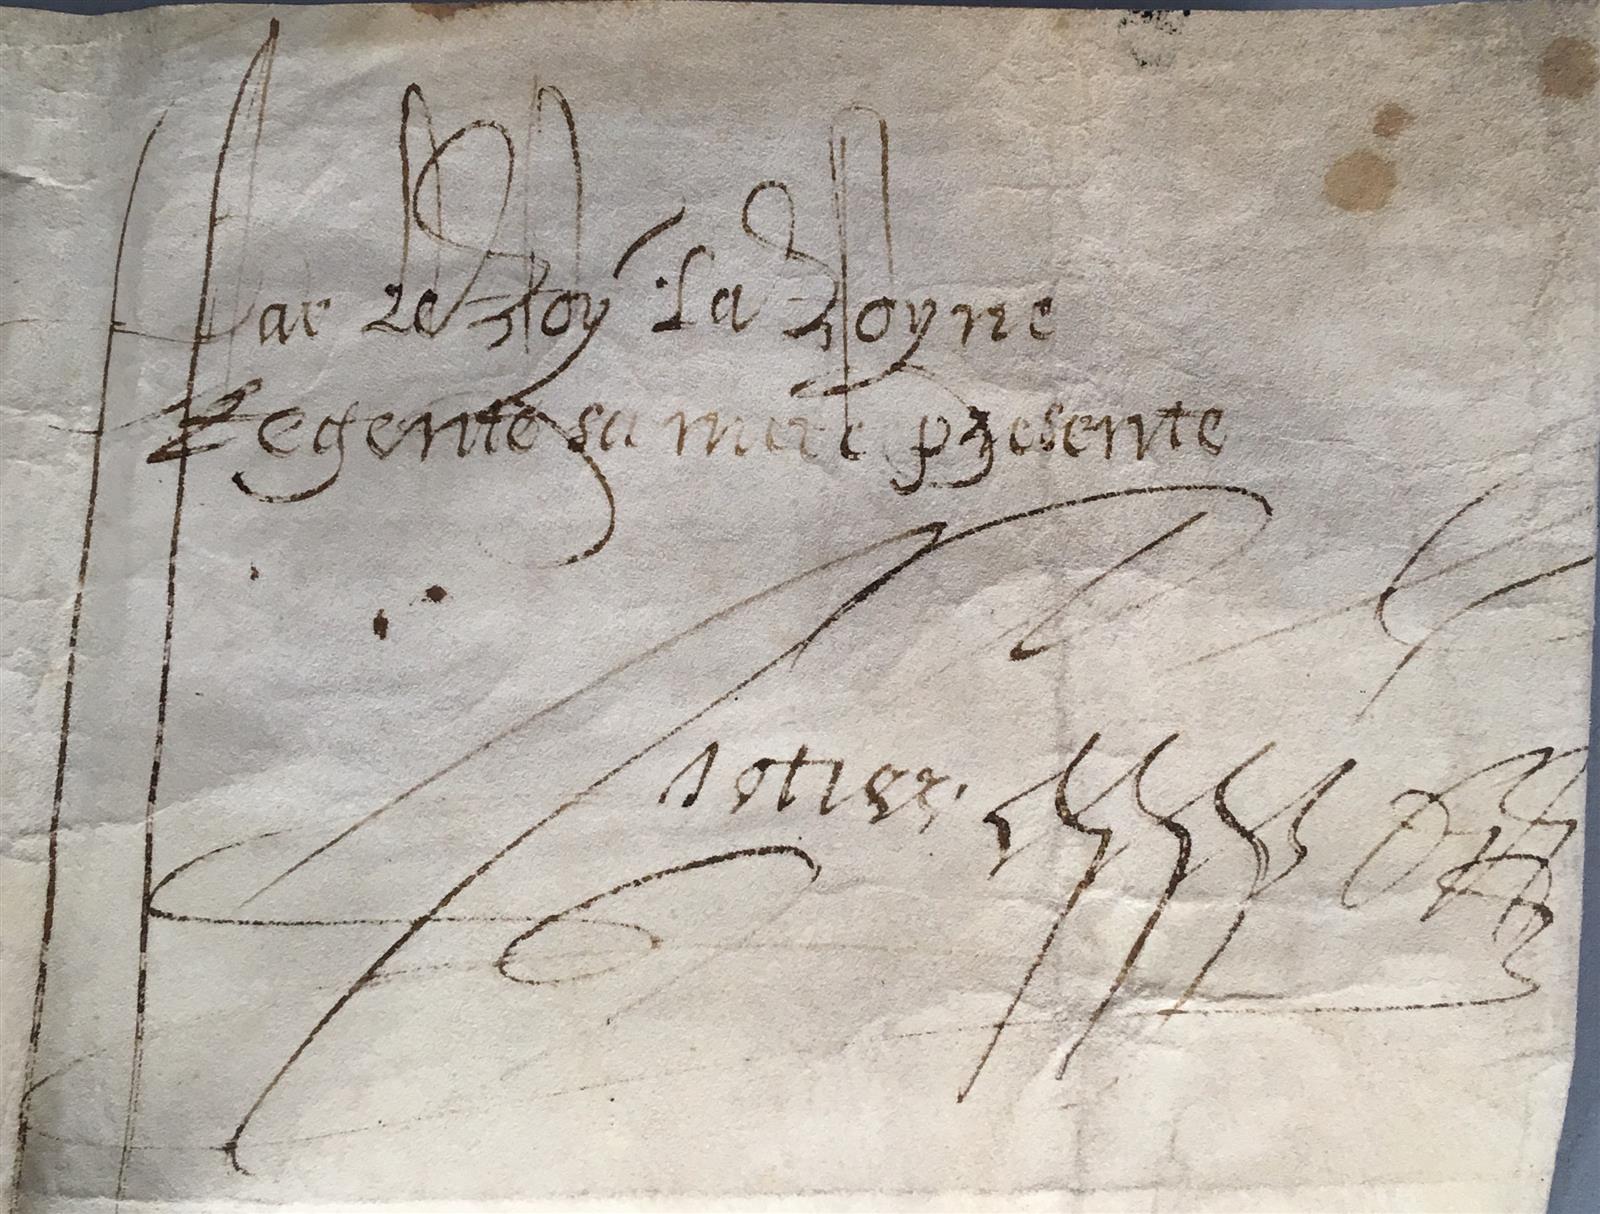 Par Le Roy La Royne
Regente sa mere presente